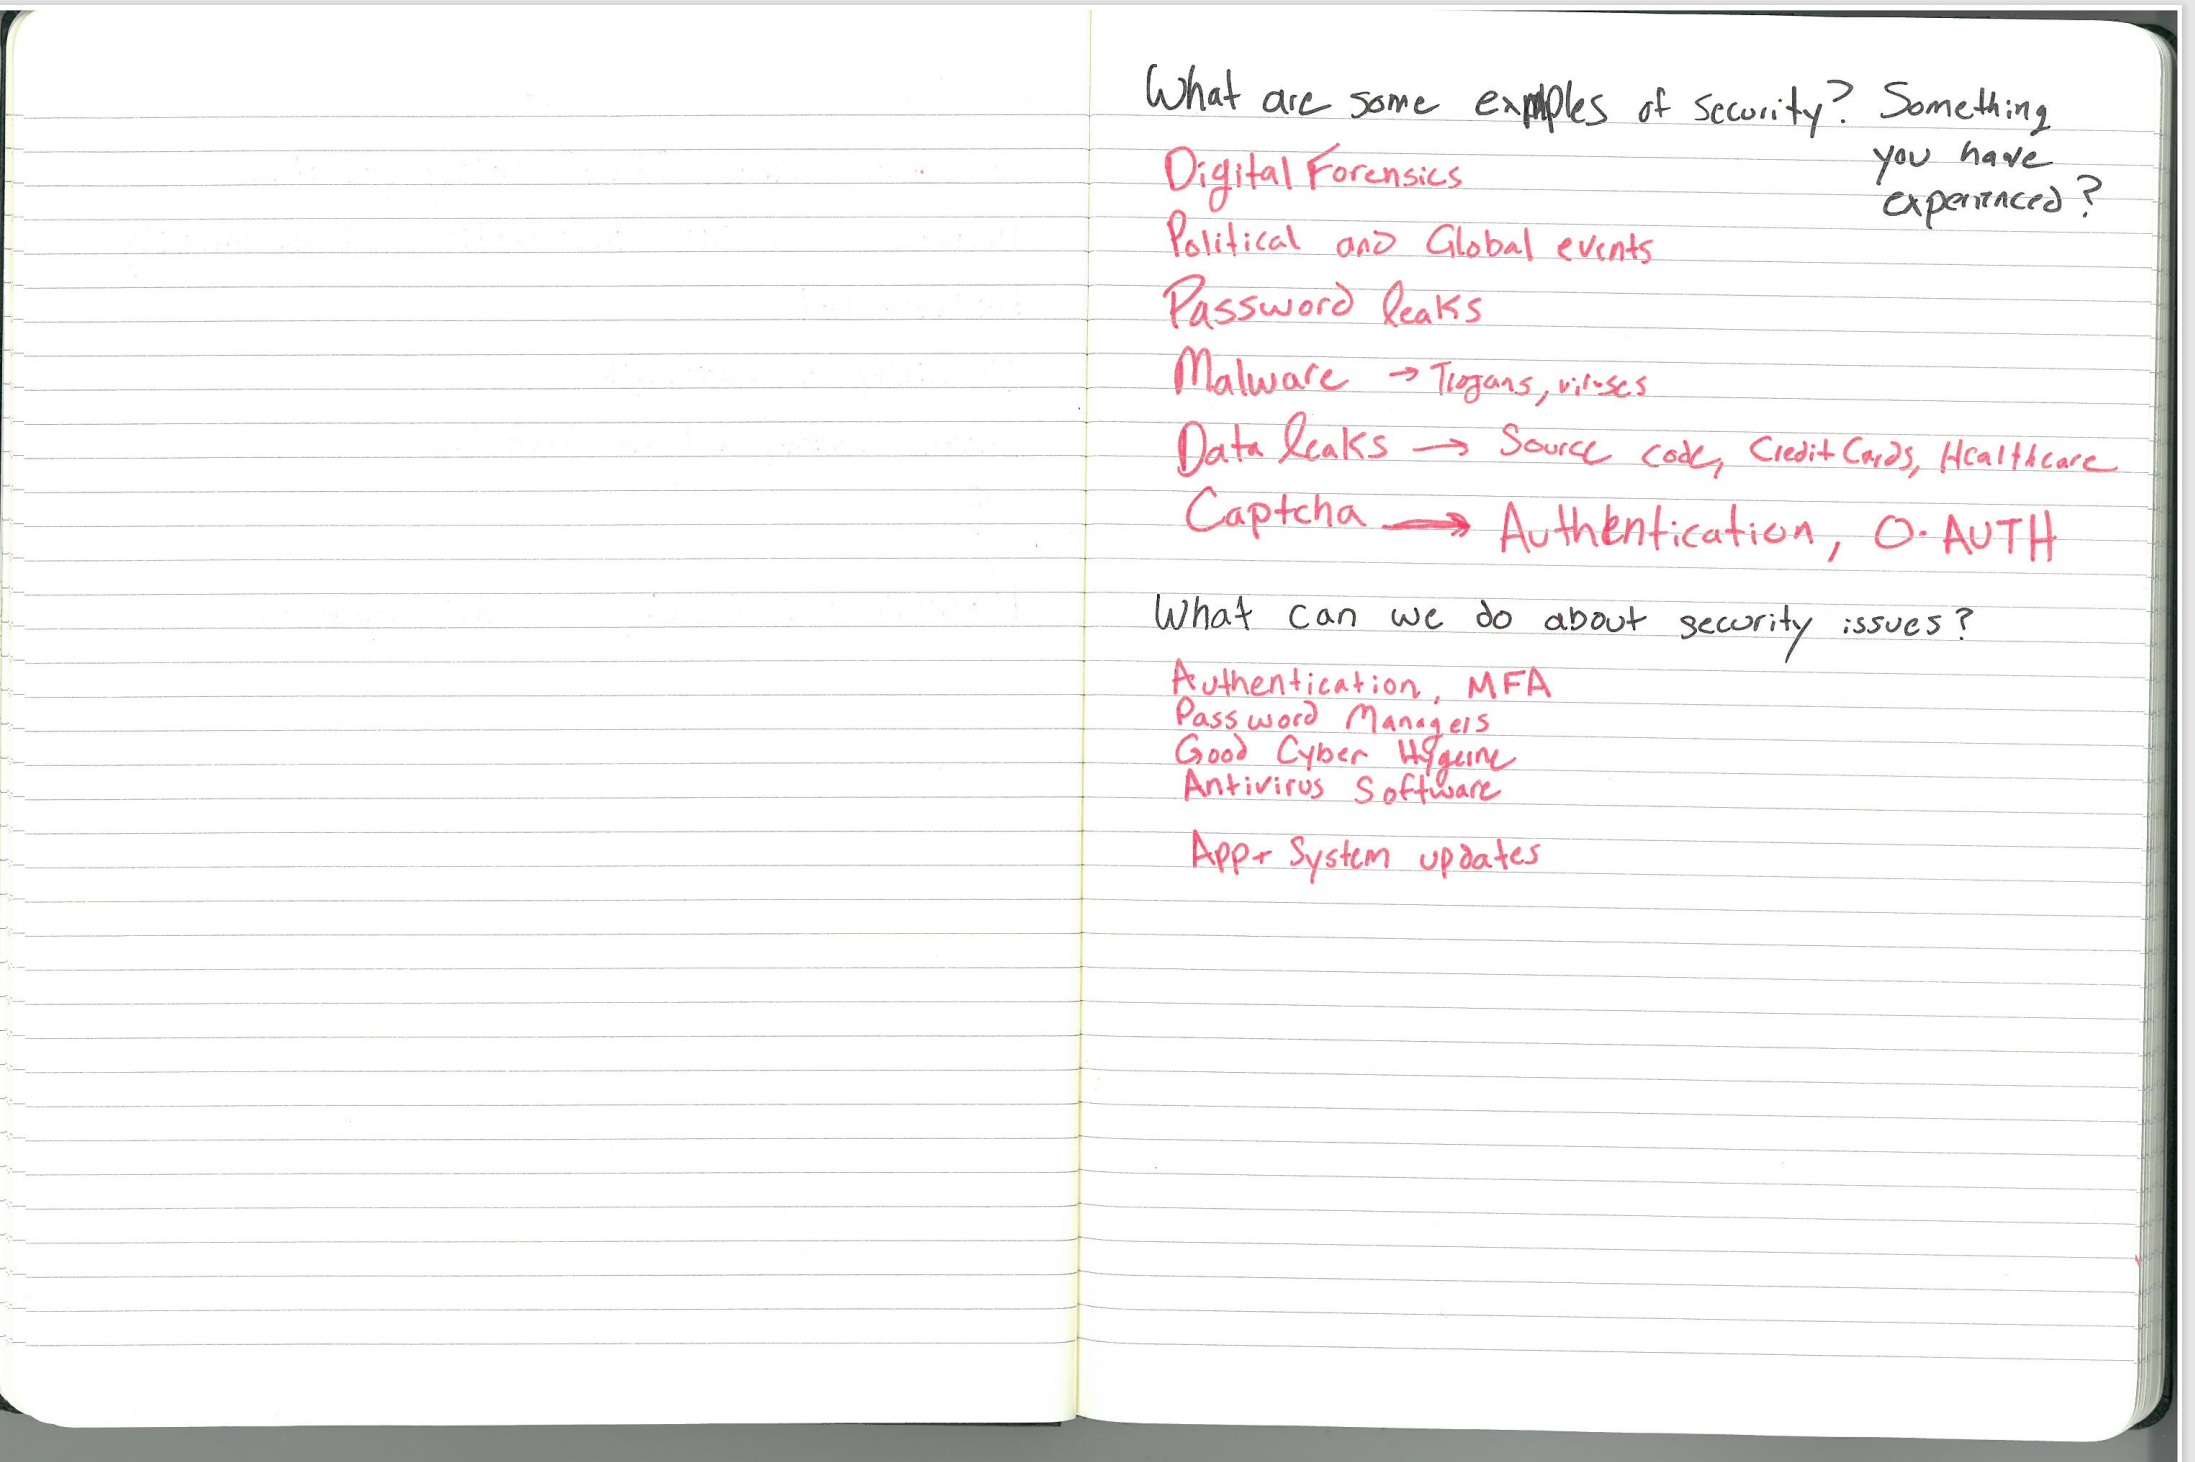 What are some examples of security? Something
you have
experienced?
Digital Forensics
Political and Global events
Password leaks
Malware → Trogans, viruses
Data leaks → Source code, Credit Cards, Healthcare
Captcha → Authentication, O-AUTH
What can we do about security issues?
Authentication, MFA
Password Managers
Good Cyber Hygeine
Antivirus Software
App + System updates